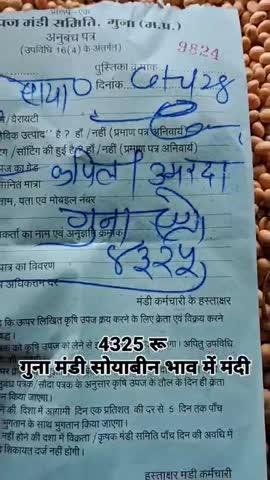 प्रारूप-एक
उपज मंडी समिति, गुना (म.प्र.)
अनुबंध पत्र
(उपविधि 16(4) के अंतर्गत)
9824
पुस्तिका क्रमांक
दिनांक
/वैरायटी
जैविक उत्पाद" है? हाँ/नहीं (प्रमाण पत्र अनिवार्य)
/सॉर्टिंग की हुई है? हाँ/नहीं (प्रमाण पत्र अनिवार्य)
उपज का ग्रेड
कपिल
मात्रा
नाम, पता एवं मोबाइल नंबर
गुना
का नाम एवं अनुज्ञप्ति क्रमांक
४३२५
पात्र का विवरण
मंडी कर्मचारी के हस्ताक्षर
कि ऊपर लिखित कृषि उपज क्रय करने के लिए क्रेता एवं विक्रय करने
4325 रू
गुना मंडी सोयाबीन भाव में मंदी
पत्रक/सौदा पत्रक के अनुसार कृषि उपज के तौल के दिन ही क्रेता
किया जाएगा।
की दिशा में आगामी दिन एक प्रतिशत की दर से 5 दिन तक पाँच
भुगतान के साथ भुगतान किया जाएगा।
नहीं होने की दशा में विक्रेता/कृषक मंडी समिति पाँच दिन की अवधि में
शिकायत दर्ज नहीं होगी।
हस्ताक्षर मंडी कर्मचारी